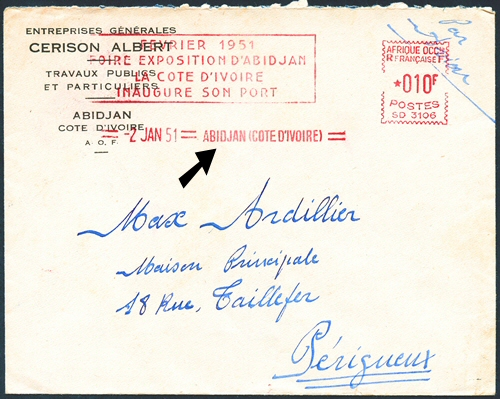 ENTREPRISES GÉNÉRALES
CERISON ALBERT
TRAVAUX PUBLICS
ET PARTICULIERS
ABIDJAN
CÔTE D'IVOIRE
A. O. F.
FÉVRIER 1951
FOIRE EXPOSITION D'ABIDJAN
LA COTE D'IVOIRE
INAUGURE SON PORT
-2 JAN 51 = ABIDJAN (COTE D'IVOIRE) =
AFRIQUE OCCLE
RF FRANÇAISE RF
*010F
POSTES
SD 3106
Par
Avion
Max Ardillier
Maison Principale
18 Rue Taillefer
Périgueux